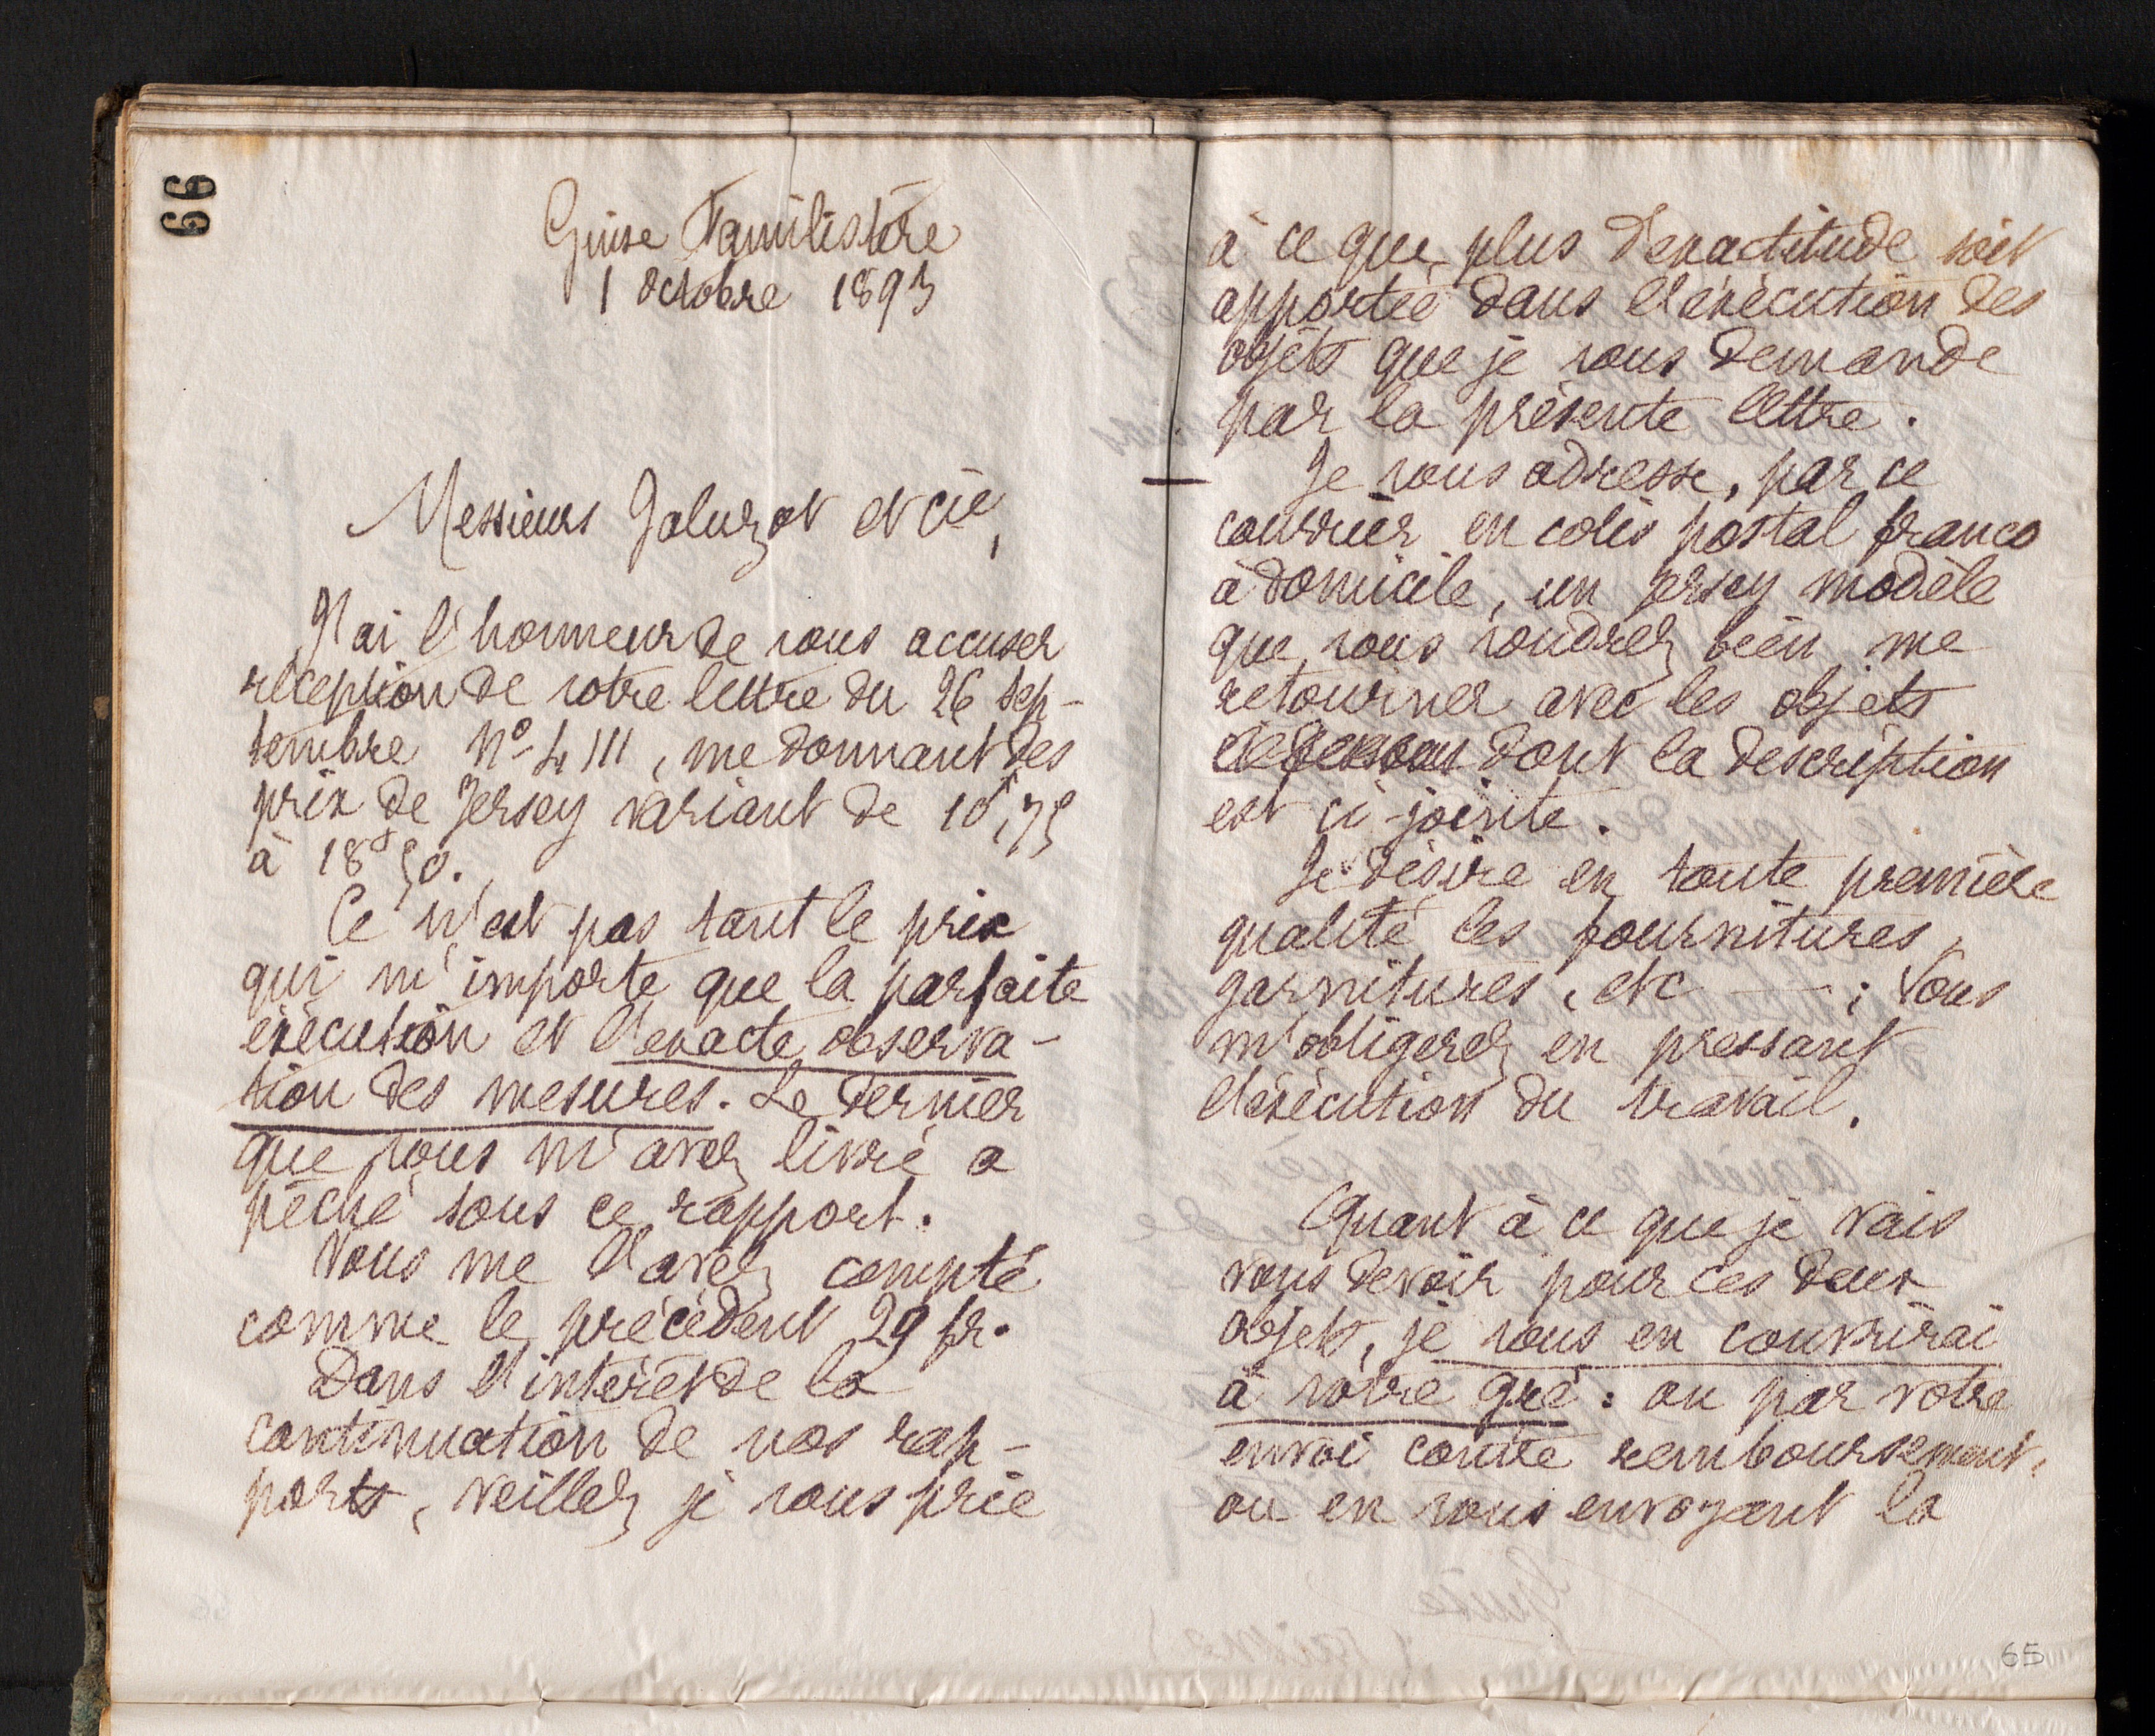 66
Guise Familistère
1 Octobre 1893
Messieurs Jaluzot et cie,
J'ai l'honneur de vous accuser
réception de votre lettre du 26 sep-
tembre No 4111, me donnant des
prix de Jersey variant de 10f,75
à 18f50.
Ce n'est pas tant le prix
qui m'importe que la parfaite
exécution et l'exacte observa-
tion des mesures. Le dernier
que vous m'avez livré a
péché sous ce rapport.
Vous me l'avez compté
comme le précédent 29 fr.
Dans l'intérêt de la
continuation de nos rap-
ports, veillez je vous prie
à ce que plus d'exactitude soit
apportée dans l'exécution des
objets que je vous demande
par la présente lettre.
Je vous adresse, par ce
courrier en colis postal franco
à domicile, un Jersey modèle
que vous voudrez bien me
retourner avec les objets
dont la description
est ci-jointe.
Je désire en toute première
qualité les fournitures,
garnitures, etc — ; Vous
m'obligerez en pressant
l'exécution du travail.
Quant à ce que je vais
vous devoir pour ces deux
objets, je vous en couvrirai
à votre gré : ou par votre
envoi contre remboursement,
ou en vous envoyant la
65